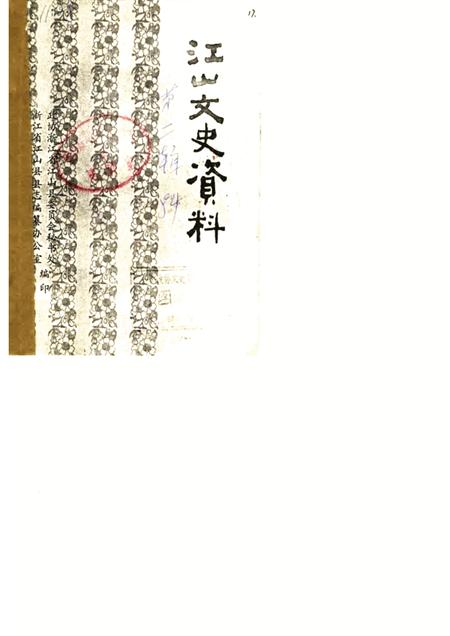 江山文史資料
第二辑
政协浙江省江山县委员会秘书处
浙江省江山县县志编纂办公室
编印
12.